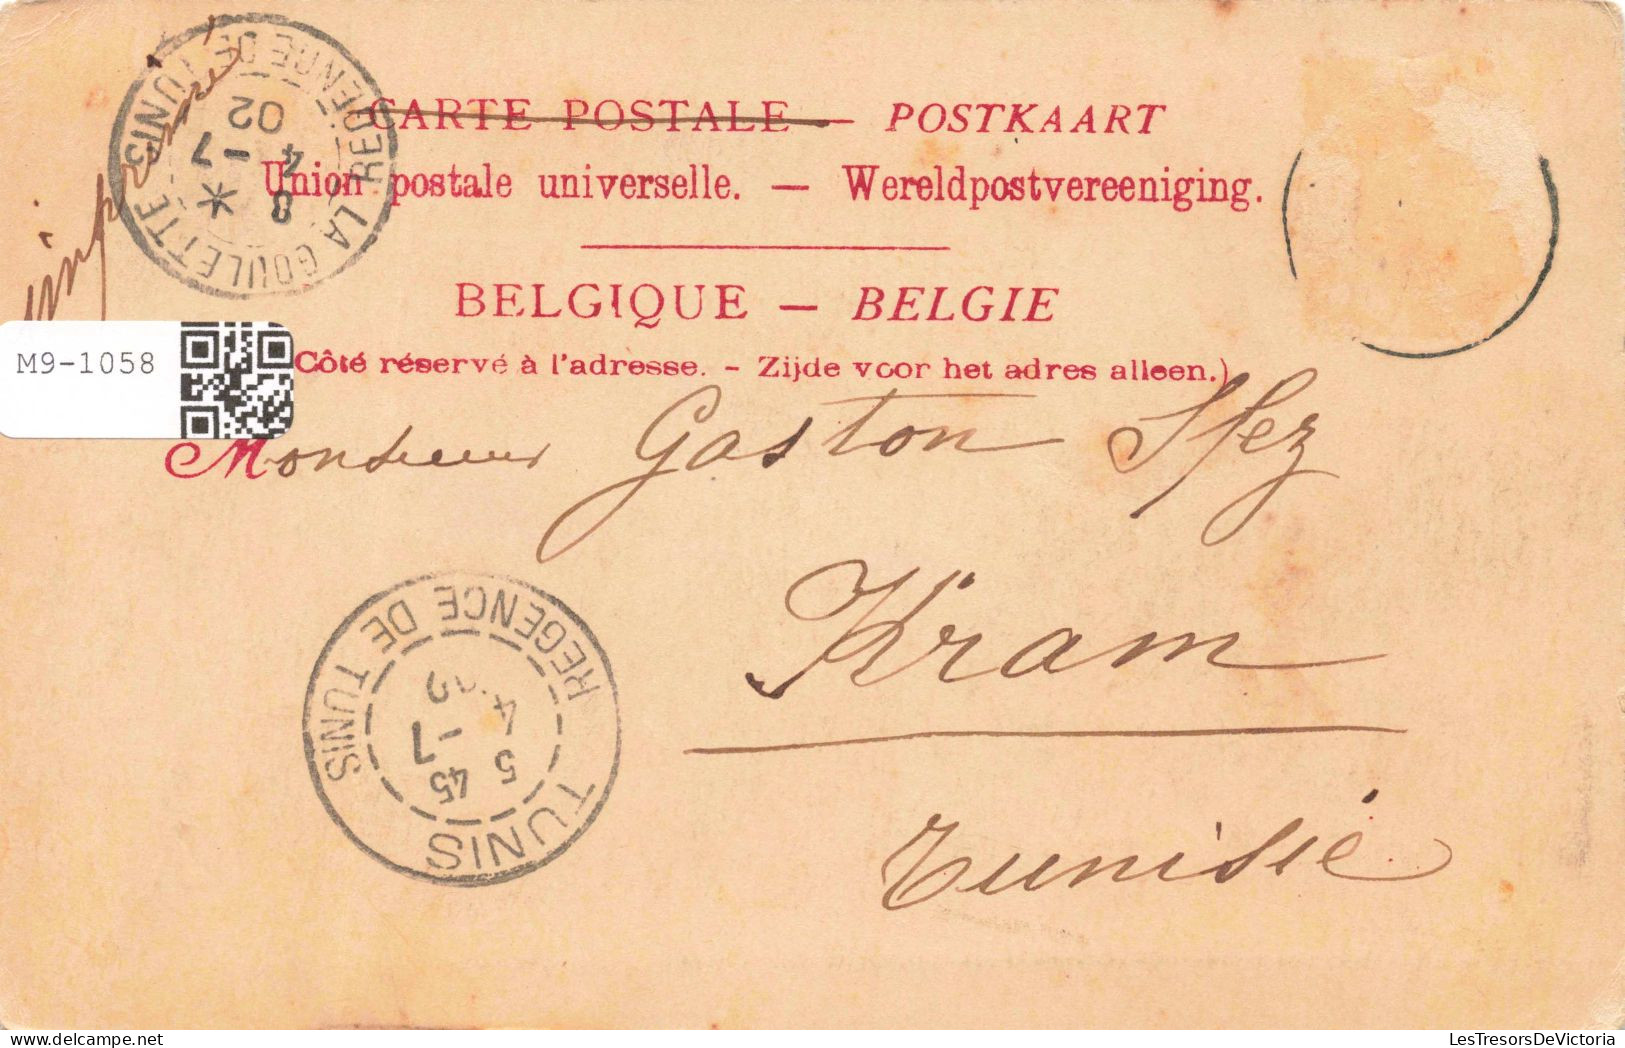 CARTE POSTALE — POSTKAART
Union postale universelle. — Wereldpostvereeniging.
BELGIQUE — BELGIE
Côté réservé à l'adresse. - Zijde voor het adres alleen.)
LA GOULETTE
REGENCE DE TUNIS
8 *
4 -7
02
M9-1058
Monsieur Gaston Sfez
Kram
Tunisie
TUNIS
REGENCE DE TUNIS
5 45
4 -7
LesTresorsDeVictoria